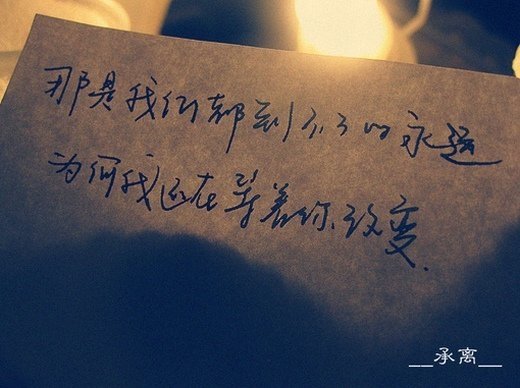 那是我们都到不了的永远
为何我还在等着你改变.
__承离__